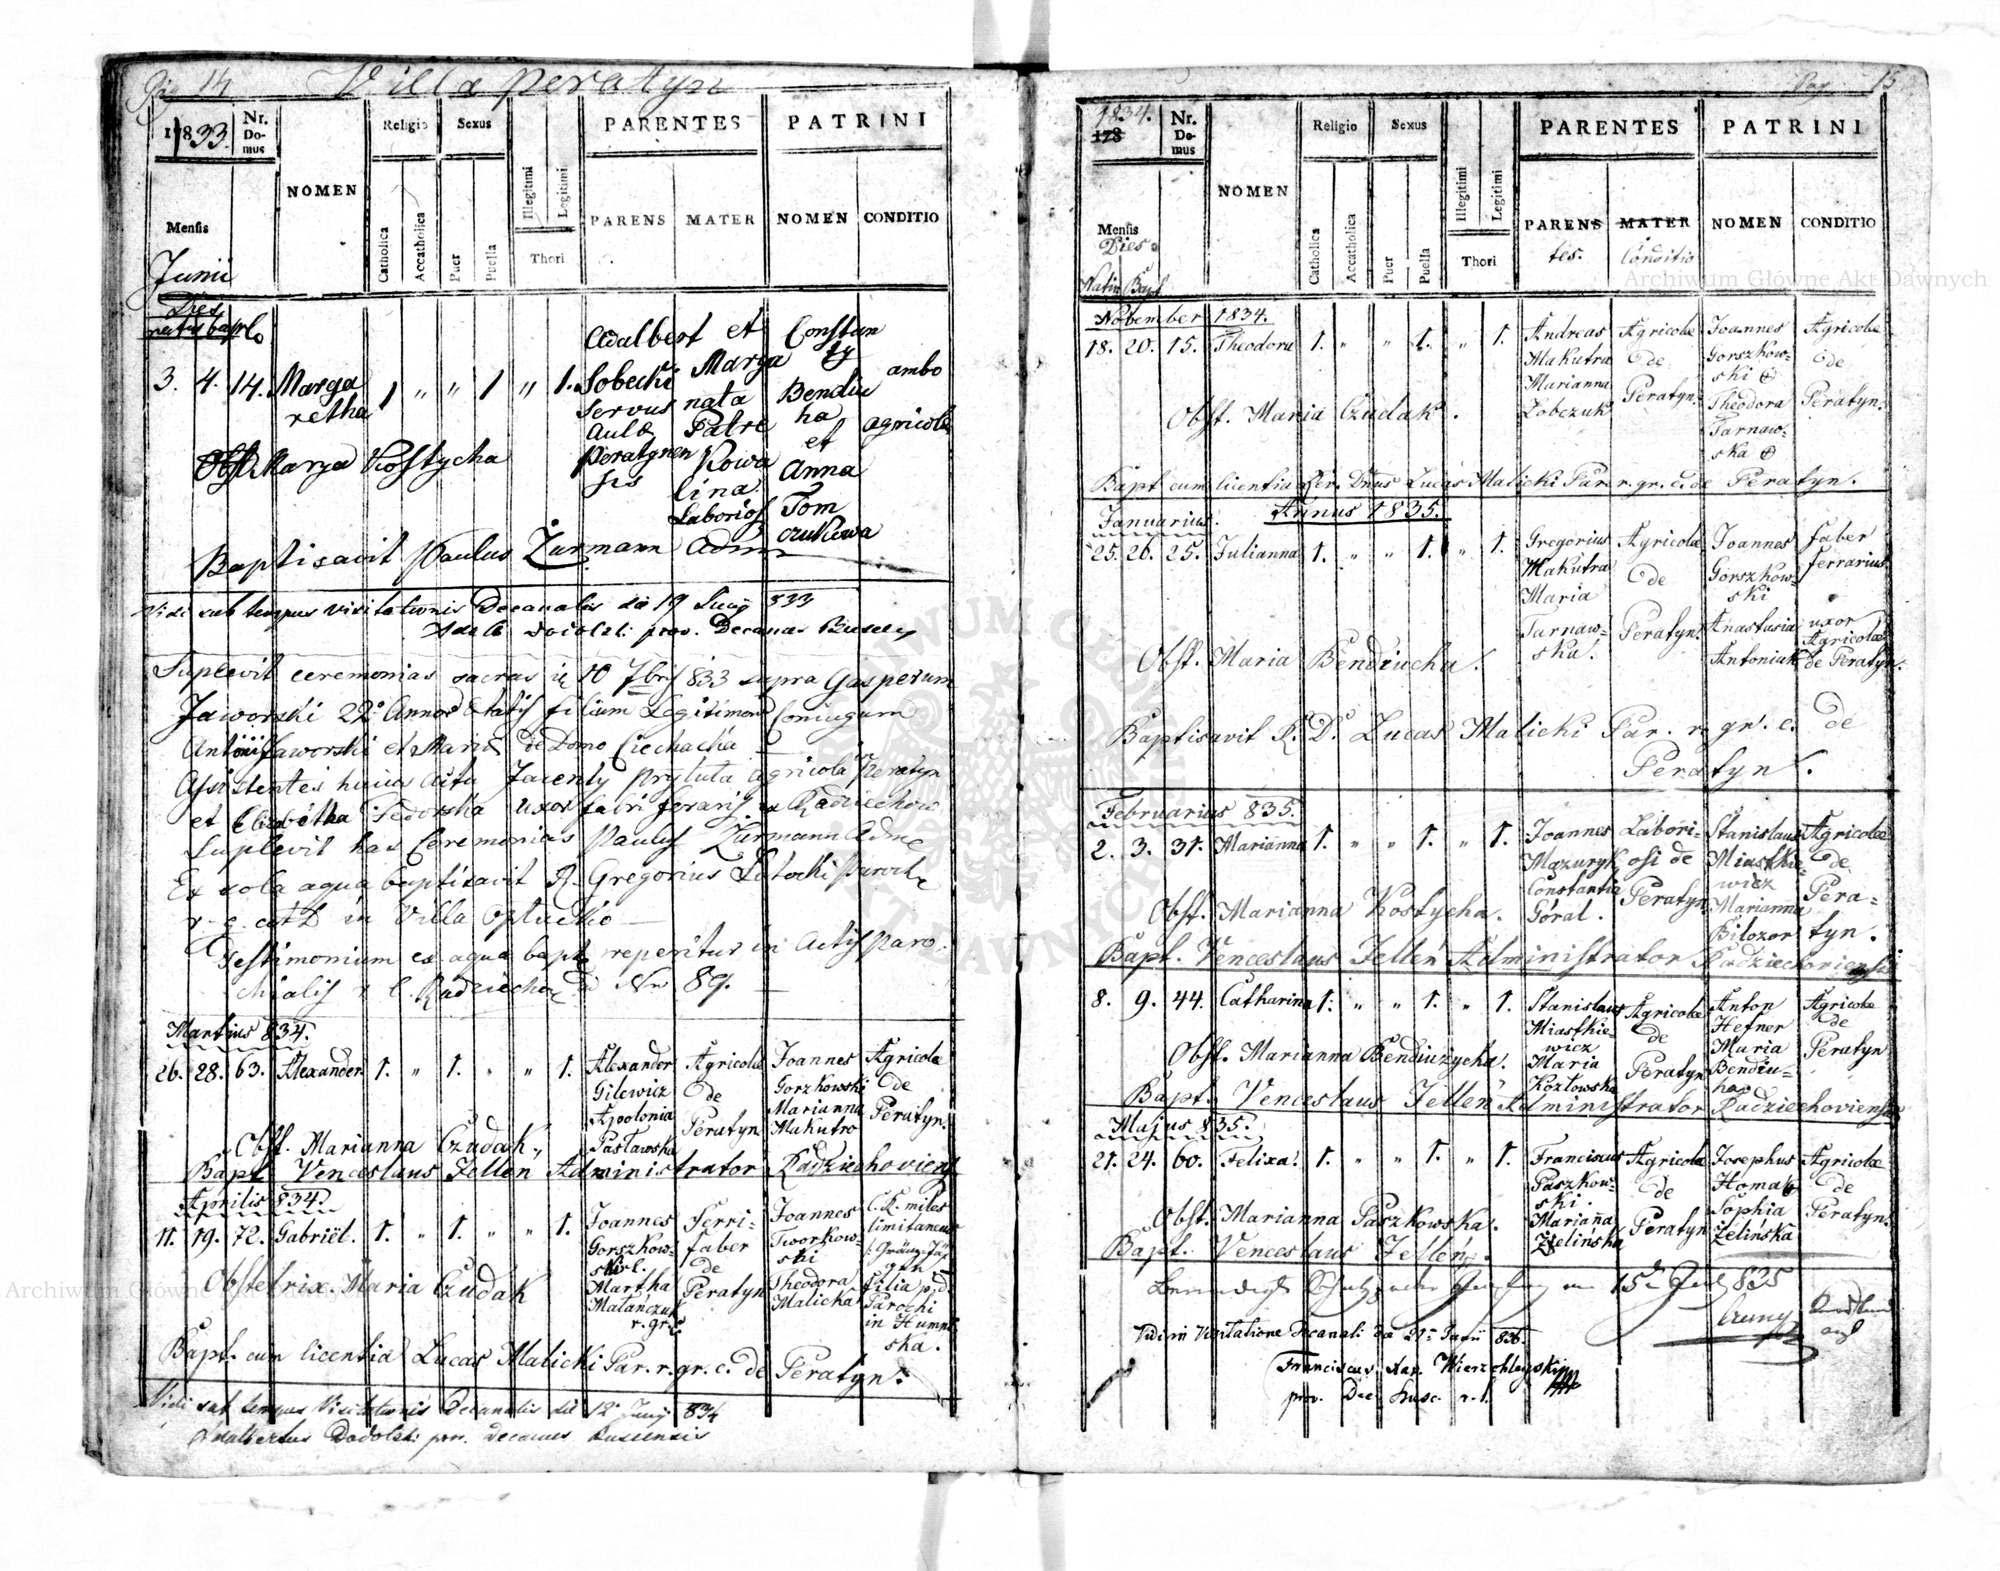 Pag 14 Villa Peratyn
1833. Nr. Do-mus NOMEN Religio Sexus PARENTES PATRINI
Mensis Catholica Accatholica Puer Puella Illegitimi Legitimi Thori PARENS MATER NOMEN CONDITIO
Junii
Dies
natus bapt
3. 4. 14. Marga
retha 1 " " 1 " 1.
Adalbert et
Sobecki
servus
aulæ
Peratynen
sis
Marya
nata
Patre
Kowa
lina
Laborios
Constan
ty
Bendiu
ha
et
Anna
Tom
czukowa
ambo
agricolæ
Obst. Marya Kostycha
Baptisavit Paulus Zurmann Adm
Vidi sub tempus visitationis Decanalis die 19 Junij 833
Suplevit ceremonias sacras 10 7bris 833 supra Gasperum
Jaworski 22 Annor Ætatis filium Legitimor Coniugum
Antonii Jaworski et Mariæ de Domo Ciechacka
Assistentes huius Actu Jacenty Prytuła agricola in Peratyn
et Elizabetha Fedorska uxor fabri ferarij ex Radziechow
Suplevit has Ceremonias Paulus Zurmann Adme
Ex sola aqua baptisavit R. Gregorius Paroch
r. g. cath in Villa
Testimonium ex aqua bapt reperitur in Actis Paro
chialis r. l. Radziechov Nr 89.
Martius 834.
26. 28. 63. Alexander 1. " 1. " " 1.
Alexander
Gilewicz
Apolonia
Pasławska
Agricolæ
de
Peratyn
Joannes
Gorzkowski
Marianna
Makutro
Agricolæ
de
Peratyn.
Obst. Marianna Czudak.
Bapt Venceslaus Jellen Administrator Radziechoviens
Aprilis 834.
11. 19. 72. Gabriël. 1. " 1. " " 1.
Joannes
Gorszkow-
ski
Martha
Matańczuk
r. gr.
Ferri-
faber
de
Peratyn
Joannes
Tworkow-
ski
Theodora
Malicka
C. R. miles
limitaneus
filia
Parochi
in Humni
ska.
Obstetrix. Maria Czudak
Bapt. cum licentia Lucas Malicki Par. r. gr. c. de Peratyn.
Vidi sub tempus Visitationis Decanalis die 12 Junij 834
Adalbertus Dodolski prov. Decanus Buscensis
Pag 15
1834. 178 Nr. Do-mus NOMEN Religio Sexus PARENTES PATRINI
Mensis Catholica Accatholica Puer Puella Illegitimi Legitimi Thori PARENS MATER NOMEN CONDITIO
Dies tes. Conditio
Natus Bapt
November 1834.
18. 20. 15. Theodora 1. " " 1. " 1.
Andreas
Makutra
Marianna
Łobczuk
Agricolæ
de
Peratyn.
Joannes
Gorszkow-
ski
Theodora
Tarnaw-
ska
Agricolæ
de
Peratyn.
Obst. Maria Czudak.
Bapt cum licentia Rev. Dnus Lucas Malicki Par. r. gr. c. de Peratyn.
Januarius. Annus 1835.
25. 26. 25. Julianna 1. " " 1. " 1.
Gregorius
Makutra
Maria
Tarnaw-
ska.
Agricolæ
de
Peratyn.
Joannes
Gorszkow-
ski
Anastasia
Antoniuk
faber
ferrarius
uxor
Agricolæ
de Peratyn.
Obst. Maria Bendiucha.
Baptisavit R. D. Lucas Malicki Par. r. gr. c. de
Peratyn.
Februarius 835.
2. 3. 31. Marianna 1. " " 1. " 1.
Joannes
Mazuryk
Constantia
Góral.
Labori-
osi de
Peratyn
Stanislaus
Miastkie-
wicz
Marianna
Bilozor
Agricolæ
de
Pera-
tyn.
Obst. Marianna Kostycha.
Bapt. Venceslaus Jellen Administrator Radziechoviensis
8. 9. 44. Catharina 1. " " 1. " 1.
Stanislaus
Miastkie-
wicz
Maria
Kozłowska
Agricolæ
de
Peratyn
Anton
Hefner
Maria
Bendiu-
ha
Agricolæ
de
Peratyn
Obst. Marianna Bendiuzycha.
Bapt. Venceslaus Jellen Administrator Radziechoviensis
Majus 835.
21. 24. 60. Felixa. 1. " " 1. " 1.
Franciscus
Paszkow-
ski.
Marianna
Żelińska
Agricolæ
de
Peratyn
Josephus
Homa
Sophia
Żelińska
Agricolæ
de
Peratyn.
Obst. Marianna Paszkowska.
Bapt. Venceslaus Jellen.
15 835
Vidi in Visitatione Decanali die Junii 836.
Franciscus Xav. Wierzchleyski
prov. Dec. Busc. r. l.
Archiwum Główne Akt Dawnych
Archiwum Główne
ARCHIWUM GŁÓWNE AKT DAWNYCH